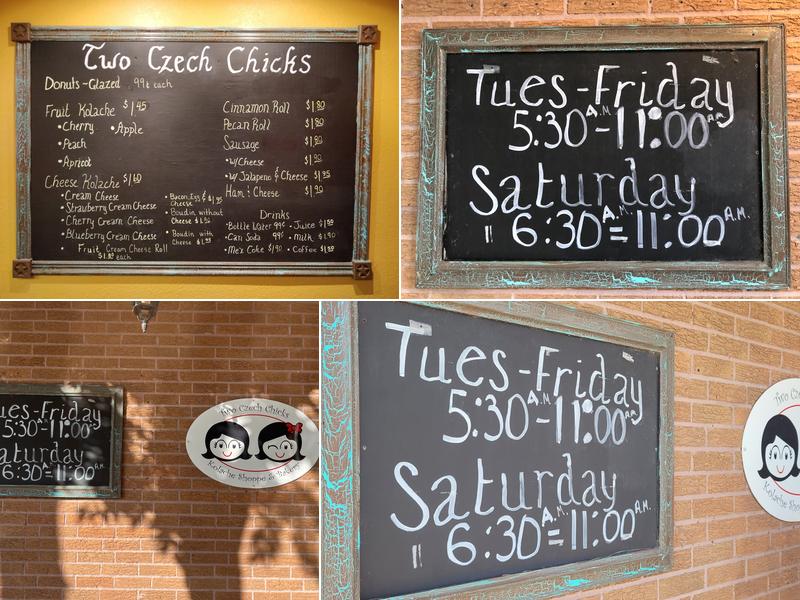 Two Czech Chicks
Donuts-Glazed 99¢ each
Fruit Kolache $1.45
•Cherry •Apple
•Peach
•Apricot
Cheese Kolache $1.60
•Cream Cheese
•Strawberry Cream Cheese
•Cherry Cream Cheese
•Blueberry Cream Cheese
• Fruit Cream Cheese Roll
each
•Bacon, Egg &
Cheese
•Boudin without
Cheese
•Boudin with
Cheese
Cinnamon Roll $1.80
Pecan Roll $1.80
Sausage $1.80
•w/Cheese $1.90
•w/ Jalapeno & Cheese $1.95
Ham & Cheese $1.90
Drinks
•Bottle Water 99¢ •Juice
•Can Soda 99¢ •Milk
•Mex Coke •Coffee
Tues-Friday
5:30 A.M.-11:00 A.M.
Saturday
6:30 A.M.=11:00 A.M.
ues-Friday
5:30 A.M.-11:00 A.M.
aturday
6:30 A.M.=11:00 A.M.
Two Czech Chicks
Kolache Shoppe & Bakery
Tues-Friday
5:30 A.M.-11:00 A.M.
Saturday
6:30 A.M.=11:00 A.M.
Two Cze
Kolache Shop